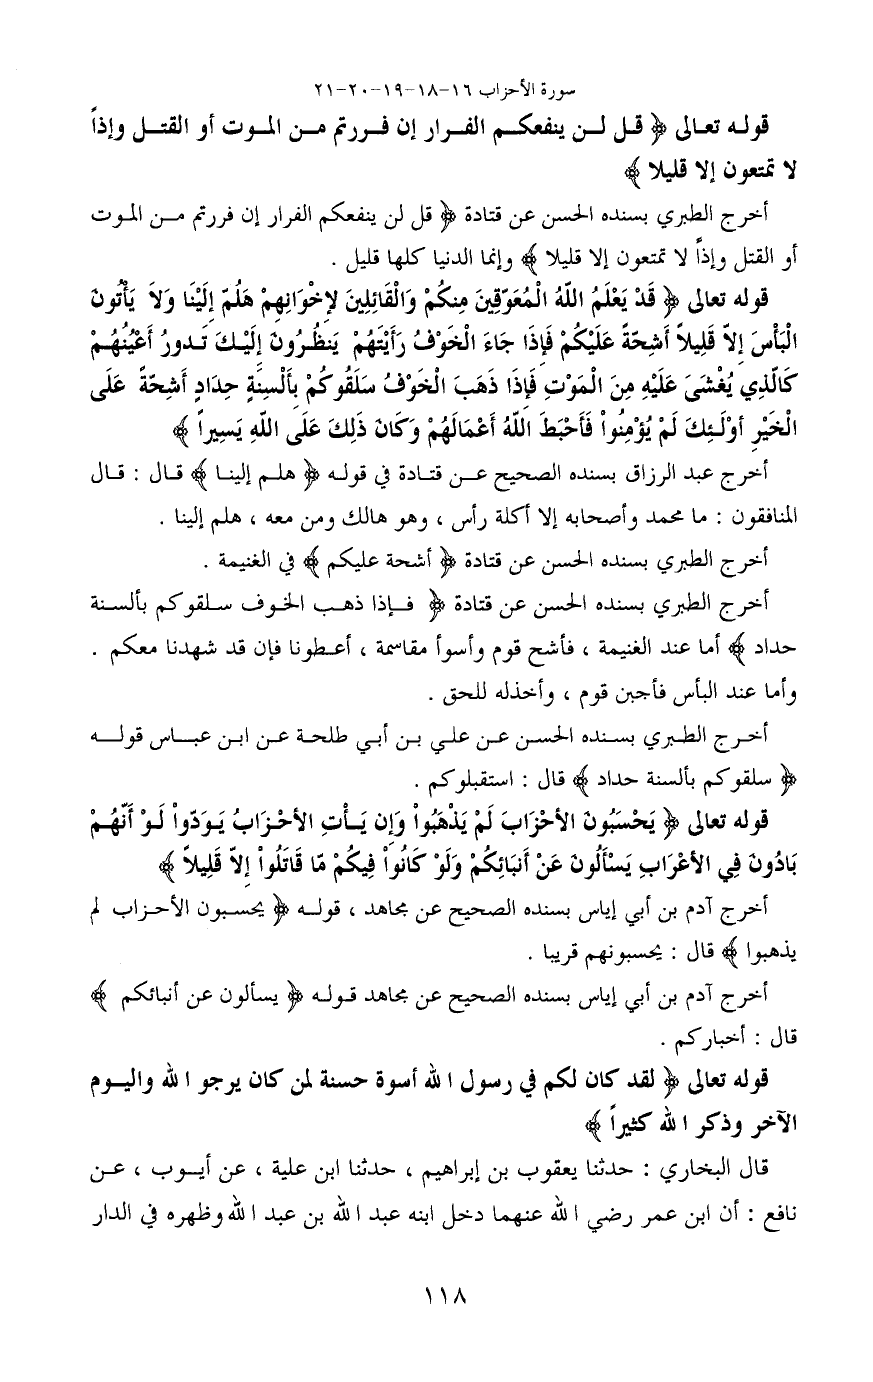 سورة الأحزاب ١٦-١٨-١٩-٢٠-٢١
قوله تعالى ﴿ قل لن ينفعكم الفرار إن فررتم من الموت أو القتل وإذاً
لا تمتعون إلا قليلا ﴾
أخرج الطبري بسنده الحسن عن قتادة ﴿ قل لن ينفعكم الفرار إن فررتم من الموت
أو القتل وإذاً لا تمتعون إلا قليلا ﴾ وإنما الدنيا كلها قليل .
قوله تعالى ﴿ قَدْ يَعْلَمُ اللّهُ الْمُعَوّقِينَ مِنكُمْ وَالْقَائِلِينَ لإِخْوَانِهِمْ هَلُمّ إِلَيْنَا وَلاَ يَأْتُونَ
الْبَأْسَ إِلاّ قَلِيلاً أَشِحّةً عَلَيْكُمْ فَإِذَا جَاءَ الْخَوْفُ رَأَيْتَهُمْ يَنظُرُونَ إِلَيْكَ تَدورُ أَعْيُنُهُمْ
كَالّذِي يُغْشَىَ عَلَيْهِ مِنَ الْمَوْتِ فَإِذَا ذَهَبَ الْخَوْفُ سَلَقُوكُمْ بِأَلْسِنَةٍ حِدَادٍ أَشِحّةً عَلَى
الْخَيْرِ أوْلَـئِكَ لَمْ يُؤْمِنُواْ فَأَحْبَطَ اللّهُ أَعْمَالَهُمْ وَكَانَ ذَلِكَ عَلَى اللّهِ يَسِيراً ﴾
أخرج عبد الرزاق بسنده الصحيح عن قتادة في قوله ﴿ هلم إلينا ﴾ قال : قال
المنافقون : ما محمد وأصحابه إلا أكلة رأس ، وهو هالك ومن معه ، هلم إلينا .
أخرج الطبري بسنده الحسن عن قتادة ﴿ أشحة عليكم ﴾ في الغنيمة .
أخرج الطبري بسنده الحسن عن قتادة ﴿ فإذا ذهب الخوف سلقوكم بألسنة
حداد ﴾ أما عند الغنيمة ، فأشح قوم وأسوأ مقاسمة ، أعطونا فإن قد شهدنا معكم .
وأما عند البأس فأجبن قوم ، وأخذله للحق .
أخرج الطبري بسنده الحسن عن علي بن أبي طلحة عن ابن عباس قوله
﴿ سلقوكم بألسنة حداد ﴾ قال : استقبلوكم .
قوله تعالى ﴿ يَحْسَبُونَ الأحْزَابَ لَمْ يَذْهَبُواْ وَإِن يَأْتِ الأحْزَابُ يَوَدّواْ لَوْ أَنّهُمْ
بَادُونَ فِي الأعْرَابِ يَسْأَلُونَ عَنْ أَنبَائِكُمْ وَلَوْ كَانُواْ فِيكُمْ مّا قَاتَلُواْ إِلاّ قَلِيلاً ﴾
أخرج آدم بن أبي إياس بسنده الصحيح عن مجاهد ، قوله ﴿ يحسبون الأحزاب لم
يذهبوا ﴾ قال : يحسبونهم قريبا .
أخرج آدم بن أبي إياس بسنده الصحيح عن مجاهد قوله ﴿ يسألون عن أنبائكم ﴾
قال : أخباركم .
قوله تعالى ﴿ لقد كان لكم في رسول الله أسوة حسنة لمن كان يرجو الله واليوم
الآخر وذكر الله كثيراً ﴾
قال البخاري : حدثنا يعقوب بن إبراهيم ، حدثنا ابن علية ، عن أيوب ، عن
نافع : أن ابن عمر رضي الله عنهما دخل ابنه عبد الله بن عبد الله وظهره في الدار
١١٨